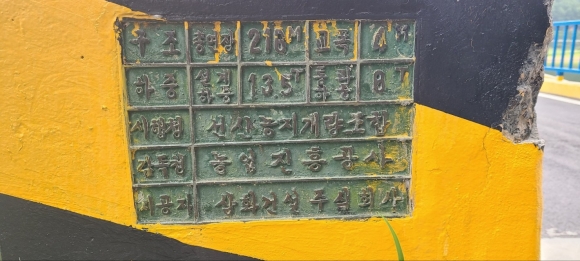 구조 총연장 216M 교폭 6M
하중 설계하중 13.5T 통과하중 8T
시행청 선산농지개량조합
감독청 농업진흥공사
시공자 삼화건설주식회사